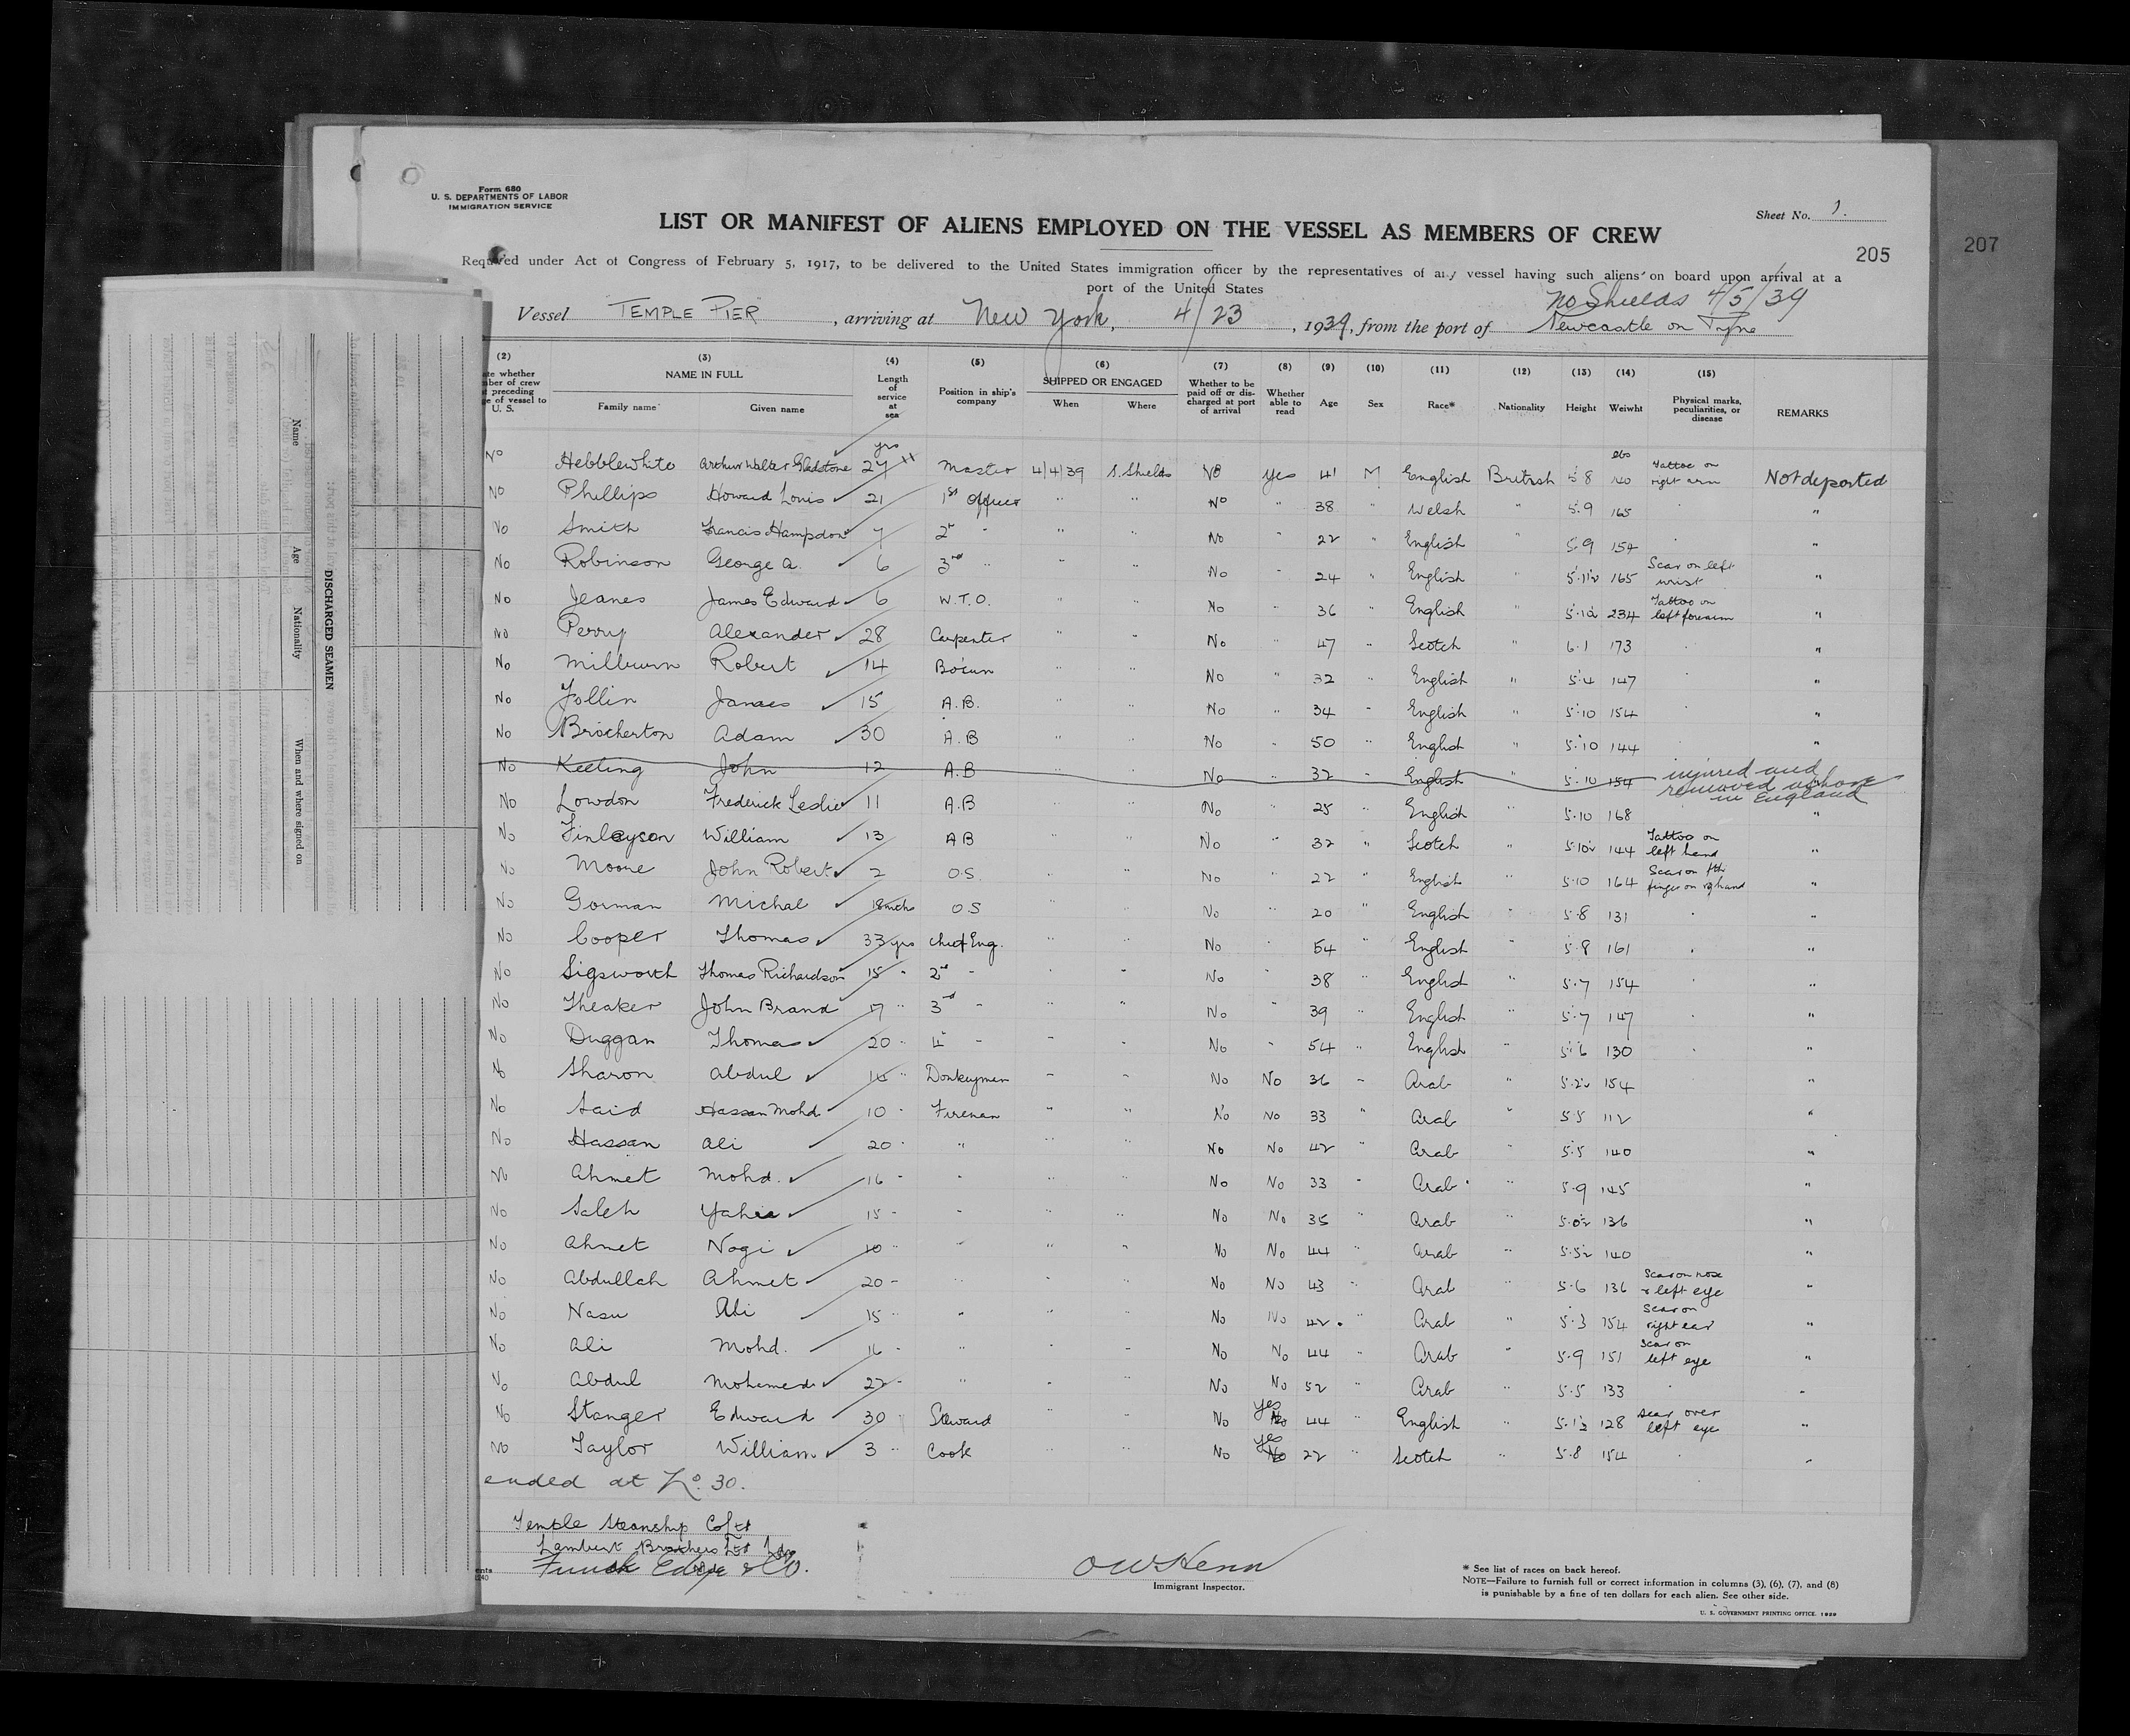 Form 680
U. S. DEPARTMENTS OF LABOR
IMMIGRATION SERVICE
Sheet No. 1.
LIST OR MANIFEST OF ALIENS EMPLOYED ON THE VESSEL AS MEMBERS OF CREW
205
207
Required under Act of Congress of February 5, 1917, to be delivered to the United States immigration officer by the representatives of any vessel having such aliens on board upon arrival at a
port of the United States
No Shields 4/5/39
Vessel TEMPLE PIER, arriving at New York, 4/23, 1939, from the port of Newcastle on Tyne
(2) (3) (4) (5) (6) (7) (8) (9) (10) (11) (12) (13) (14) (15)
NAME IN FULL Length of service at sea Position in ship's company SHIPPED OR ENGAGED Whether to be paid off or discharged at port of arrival Whether able to read Age Sex Race* Nationality Height Weiwht Physical marks, peculiarities, or disease REMARKS
Family name Given name When Where
yrs lbs
No Hebblewhite Arthur Walter Gladstone 27 Master 4/4/39 S. Shields No Yes 41 M English British 5 8 140 Tattoo on right arm Not deported
No Phillips Howard Louis 21 1st Officer " " No " 38 " Welsh " 5.9 165 "
No Smith Francis Hampdon 7 2" " " " No " 22 " English " 5.9 154 "
No Robinson George A. 6 3rd " " " No " 24 " English " 5.11½ 165 Scar on left wrist "
No Jeanes James Edward 6 W.T.O. " " No " 36 " English " 5.10½ 234 Tattoo on left forearm "
No Perry Alexander 28 Carpenter " " No " 47 " Scotch " 6.1 173 "
No Milburn Robert 14 Bo'sun " " No " 32 " English " 5.4 147 "
No Jollin James 15 A.B. " " No " 34 " English " 5.10 154 "
No Brocherton Adam 30 A.B " " No " 50 " English " 5.10 144 "
No Keeling John 12 A.B " " No " 32 " English " 5.10 154 injured and removed in England
No Lowdon Frederick Leslie 11 A.B " " No " 25 " English " 5.10 168 "
No Finlayson William 13 AB " " No " 32 " Scotch " 5.10½ 144 Tattoo on left hand "
No Moore John Robert 2 O.S. " " No " 22 " English " 5.10 164 Scar on 4th finger on rg hand "
No Gorman Michal 18mths O.S " " No " 20 " English " 5.8 131 "
No Cooper Thomas 33 yrs Chief Eng. " " No " 54 English " 5.8 161 "
No Sigsworth Thomas Richardson 15 " 2nd " " " No " 38 English " 5.7 154 "
No Theaker John Brand 17 " 3rd " " " No " 39 " English " 5.7 147 "
No Duggan Thomas 20 " 4" " " " No " 54 " English " 5.6 130 "
No Sharon Abdul " Donkeyman " " No No 36 " Arab " 5.2½ 154 "
No Said Hassan Mohd 10 " Fireman " " No No 33 " Arab " 5.5 112 "
No Hassan Ali 20 " " " " No No 42 " Arab " 5.5 140 "
No Ahmet Mohd. 16 " " " " No No 33 " Arab " 5.9 145 "
No Saleh Yahia 15 " " " " No No 35 " Arab " 5.0½ 136 "
No Ahmet Nagi 10 " " " " No No 44 " Arab " 5.5½ 140 "
No Abdullah Ahmet 20 " " " " No No 43 " Arab " 5.6 136 Scar on nose & left eye "
No Nasu Ali 15 " " " " No No 42 " Arab " 5.3 154 Scar on right ear "
No Ali Mohd. 16 " " " " No No 44 " Arab " 5.9 151 Scar on left eye "
No Abdul Mohamed 22 " " " " No No 52 " Arab " 5.5 133 "
No Stanger Edward 30 " Steward " " No Yes 44 " English " 5.1½ 128 Scar over left eye "
No Taylor William 3 " Cook " " No Yes 22 " Scotch " 5.8 154 "
ended at No. 30.
Temple Steamship Co Ltd
Lambert Brothers Ltd Ldn
Funch Edye & Co.
O W Henn
Immigrant Inspector.
* See list of races on back hereof.
NOTE—Failure to furnish full or correct information in columns (3), (6), (7), and (8)
is punishable by a fine of ten dollars for each alien. See other side.
U. S. GOVERNMENT PRINTING OFFICE. 1929
DISCHARGED SEAMEN
Name Age Nationality When and where signed on